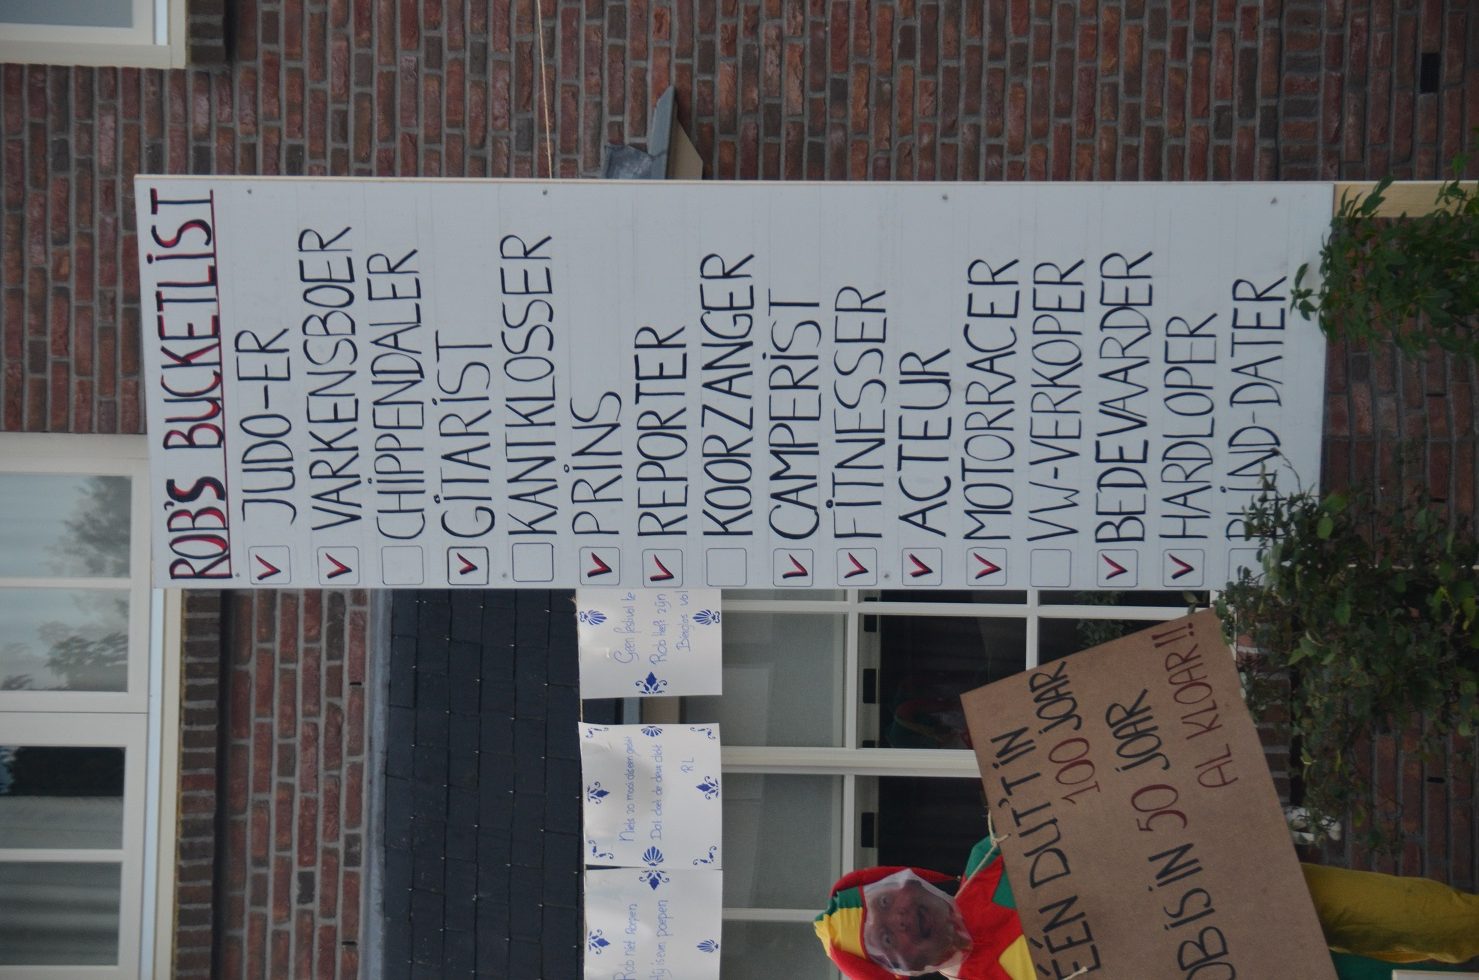 ROB'S BUCKETLIST
JUDO-ER
VARKENSBOER
CHIPPENDALER
GITARIST
KANTKLOSSER
PRINS
REPORTER
KOORZANGER
CAMPERIST
FITNESSER
ACTEUR
MOTORRACER
VW-VERKOPER
BEDEVAARDER
HARDLOPER
BLIND-DATER
Geen festival te
Rob heft zijn
Bierglas vol
Niets zo mooi als een geel
Dat deel de deur dekt
RL
Rob niet
Hij is even poepen
ÉÉN DUT'T IN
100 JOAR
OB IS IN 50 JOAR
AL KLOAR!!